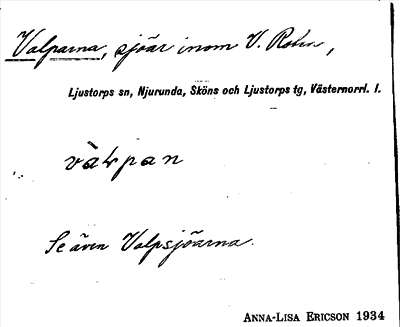 Valparna, sjöar inom V. Roten,
Ljustorps sn, Njurunda, Sköns och Ljustorps tg, Västernorrl. l.
Se även Valpsjöarna.
ANNA-LISA ERICSON 1934